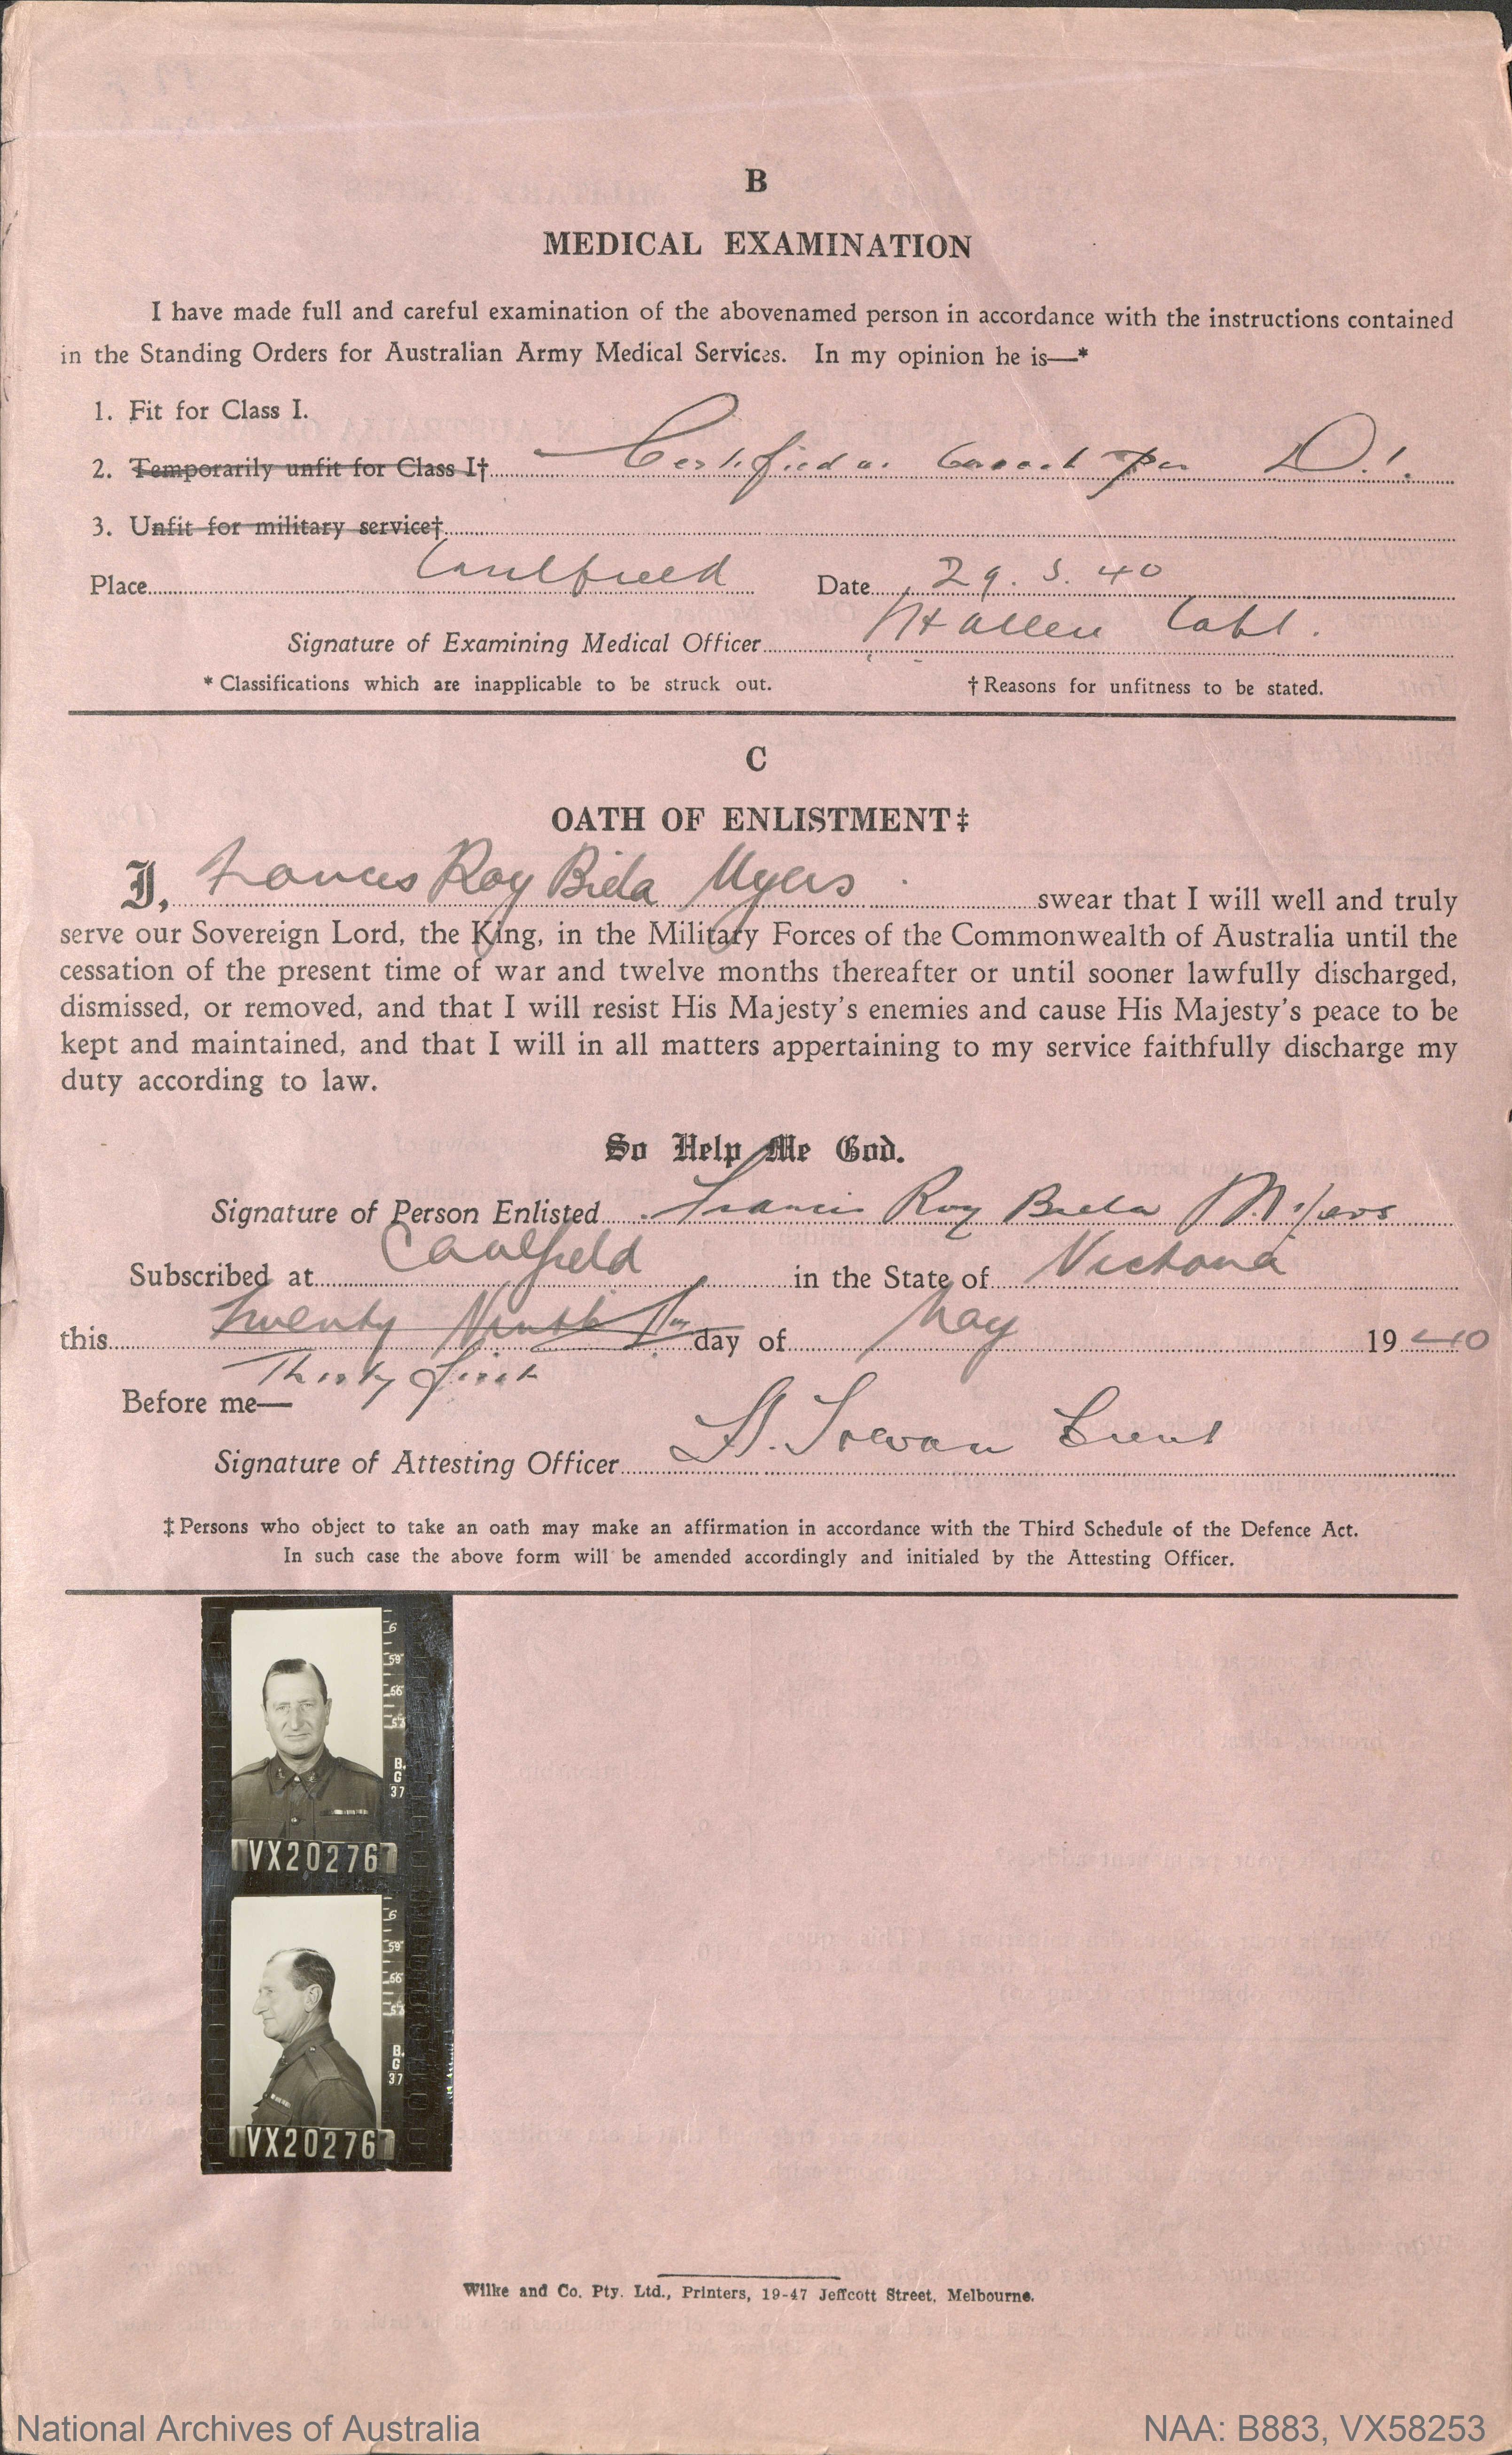 B
MEDICAL EXAMINATION
I have made full and careful examination of the abovenamed person in accordance with the instructions contained
in the Standing Orders for Australian Army Medical Services. In my opinion he is—*
1. Fit for Class I.
2. Temporarily unfit for Class I† Certified as Correct per D.1.
3. Unfit for military service†
Place Caulfield Date 29.5.40
Signature of Examining Medical Officer Allen
* Classifications which are inapplicable to be struck out. † Reasons for unfitness to be stated.
C
OATH OF ENLISTMENT‡
I, Frances Roy Biela Myers swear that I will well and truly
serve our Sovereign Lord, the King, in the Military Forces of the Commonwealth of Australia until the
cessation of the present time of war and twelve months thereafter or until sooner lawfully discharged,
dismissed, or removed, and that I will resist His Majesty's enemies and cause His Majesty's peace to be
kept and maintained, and that I will in all matters appertaining to my service faithfully discharge my
duty according to law.
So Help Me God.
Signature of Person Enlisted Francis Roy Biela Myers
Subscribed at Caulfield in the State of Victoria
this Twenty Ninth day of May 1940
Thirty first
Before me—
Signature of Attesting Officer
‡ Persons who object to take an oath may make an affirmation in accordance with the Third Schedule of the Defence Act.
In such case the above form will be amended accordingly and initialed by the Attesting Officer.
6
59
56
53
B.
G
37
VX20276
6
59
56
53
B.
G
37
VX20276
Wilke and Co. Pty. Ltd., Printers, 19-47 Jeffcott Street, Melbourne.
National Archives of Australia NAA: B883, VX58253